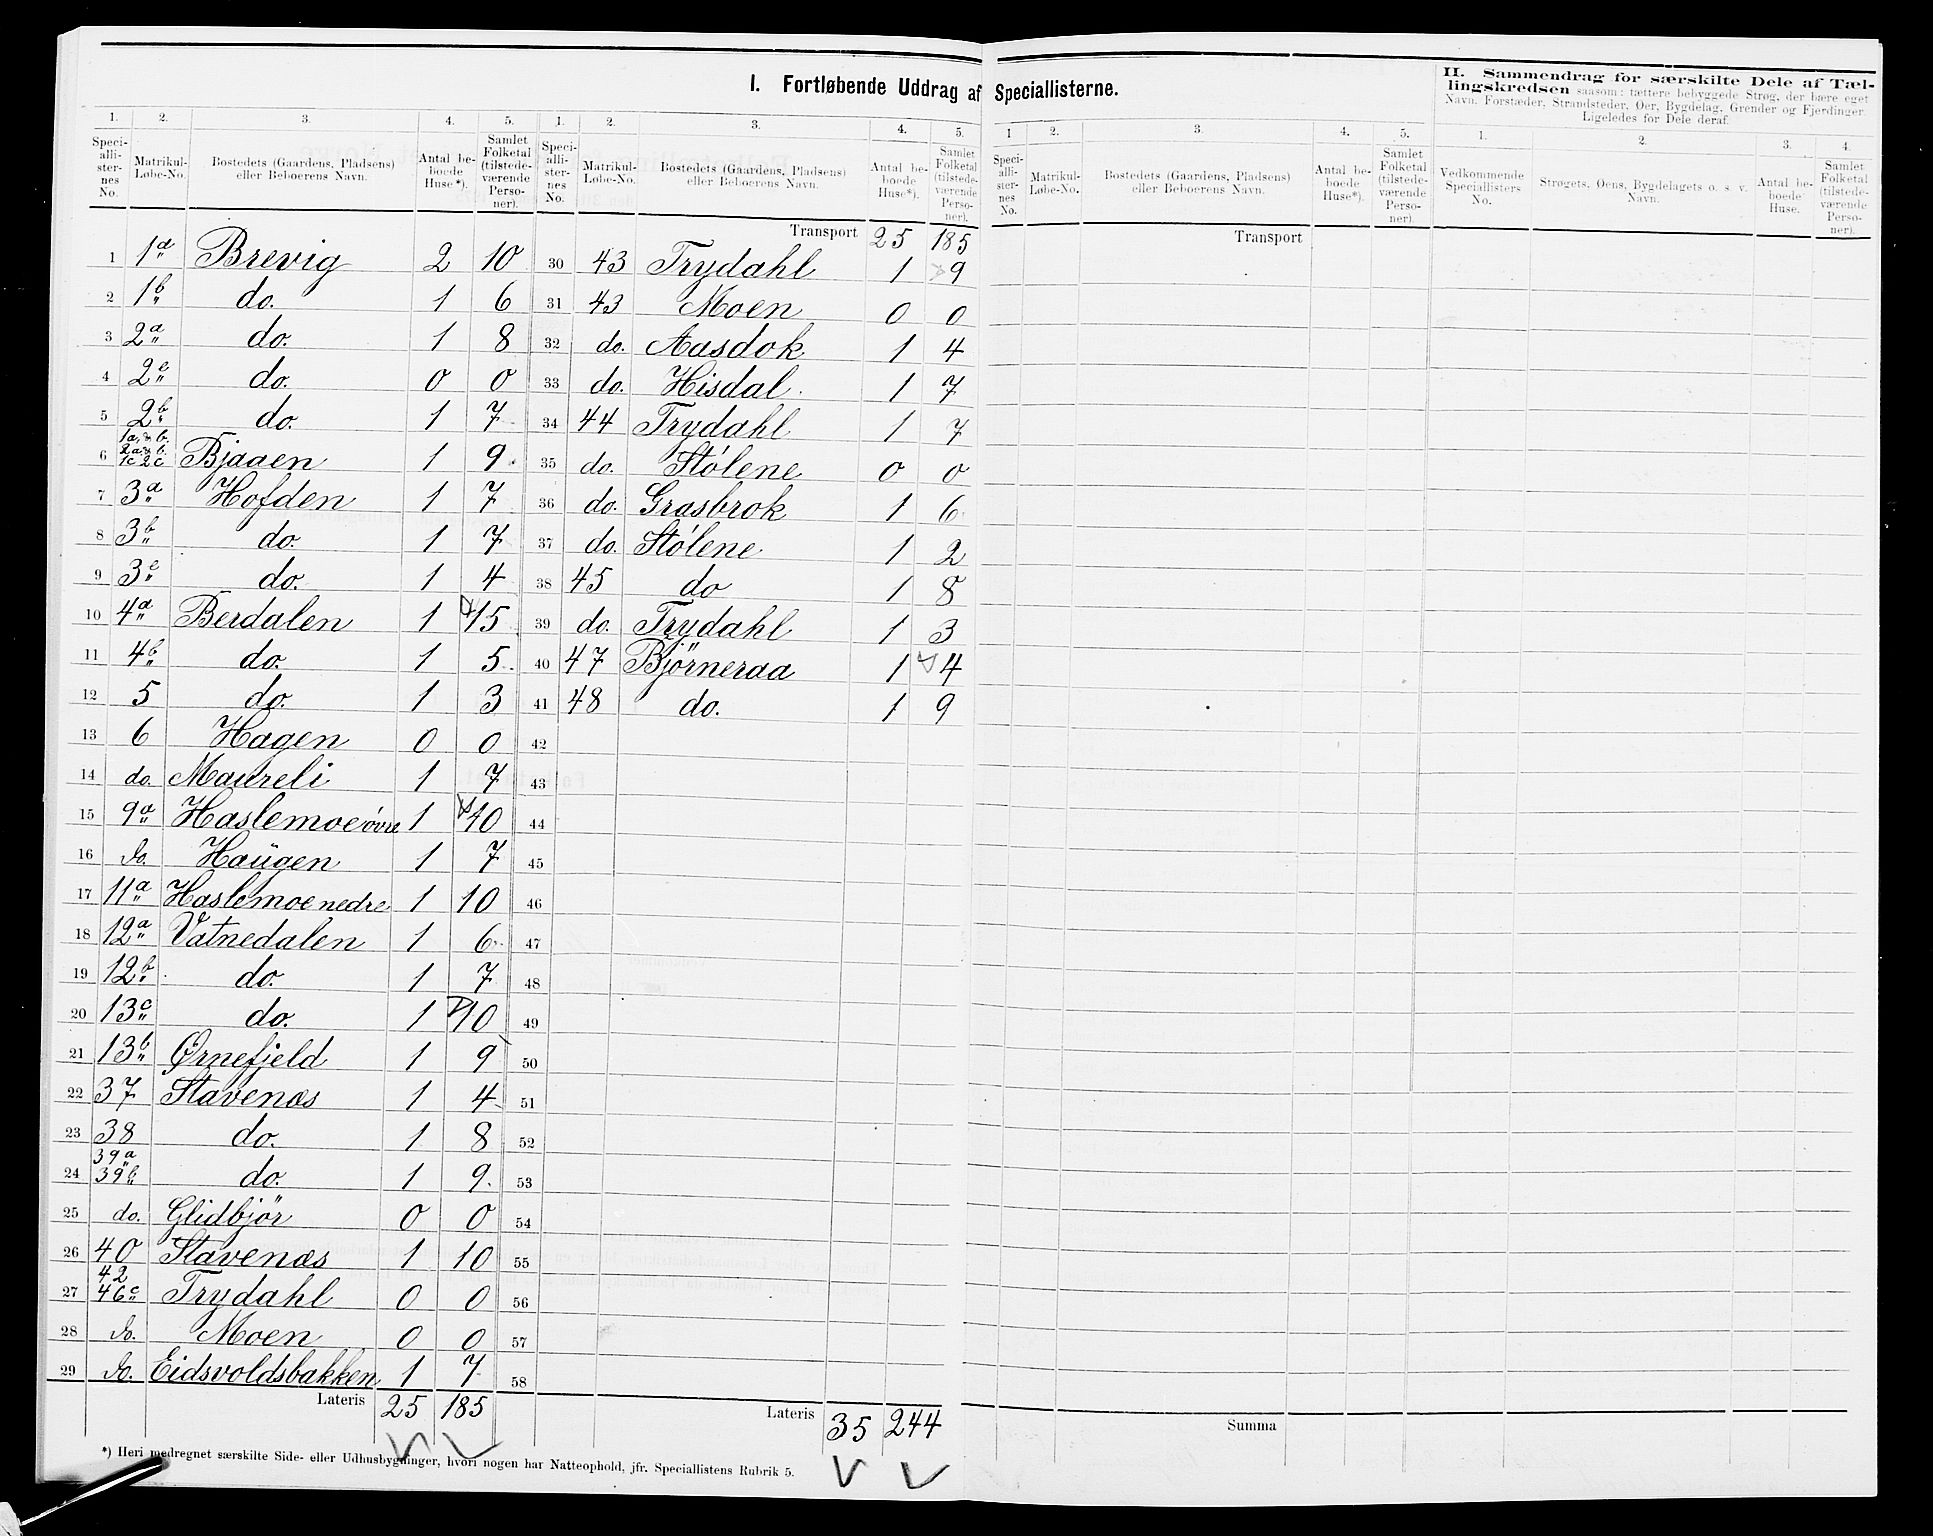 I. Fortløbende Uddrag af Speciallisterne.
1. 2. 3. 4. 5.
Speciallisternes No. Matrikul-Løbe-No. Bostedets (Gaardens, Pladsens) eller Beboerens Navn. Antal beboede Huse*). Samlet Folketal (tilstedeværende Personer).
1 1a Brevig 2 10
2 1b do. 1 6
3 2a do. 1 8
4 2c do. 0 0
5 2b do. 1 7
6 1a, & b. 2a & b. 1c 2c Bjaaen 1 9
7 3a Hofden 1 7
8 3b do. 1 7
9 3c do. 1 4
10 4a Berdalen 1 15
11 4b do. 1 5
12 5 do. 1 3
13 6 Hagen 0 0
14 do. Maureli 1 7
15 9a Haslemoe øvre 1 10
16 do. Haugen 1 7
17 11a Haslemoe nedre 1 10
18 12a Vatnedalen 1 6
19 12b do. 1 7
20 13c do. 1 10
21 13b Ørnefjeld 1 9
22 37 Stavenæs 1 4
23 38 do. 1 8
24 39a 39b do. 1 9
25 do. Glidbjör 0 0
26 40 Stavenæs 1 10
27 42 46c Trydahl 0 0
28 do. Moen 0 0
29 do. Eidsvoldsbakken 1 7
Lateris 25 185
*) Heri medregnet særskilte Side- eller Udhusbygninger, hvori nogen har Natteophold, jfr. Speciallistens Rubrik 5.
1. 2. 3. 4. 5.
Speciallisternes No. Matrikul-Løbe-No. Bostedets (Gaardens, Pladsens) eller Beboerens Navn. Antal beboede Huse*). Samlet Folketal (tilstedeværende Personer).
Transport 25 185
30 43 Trydahl 1 9
31 43 Moen 0 0
32 do. Aasdok 1 4
33 do. Hisdal. 1 7
34 44 Trydahl 1 7
35 do. Stólene 0 0
36 do. Grasbrok 1 6
37 do. Stólene 1 2
38 45 do 1 8
39 do. Trydahl 1 3
40 47 Björneraa 1 4
41 48 do. 1 9
42
43
44
45
46
47
48
49
50
51
52
53
54
55
56
57
58
Lateris 35 244
1 2. 3. 4. 5.
Speciallisternes No. Matrikul-Løbe-No. Bostedets (Gaardens, Pladsens) eller Beboerens Navn. Antal beboede Huse*). Samlet Folketal (tilstedeværende Personer).
Transport
Summa
II. Sammendrag for særskilte Dele af Tællingskredsen saasom: tættere bebyggede Strøg, der bære eget Navn. Forstæder, Strandsteder, Øer, Bygdelag, Grender og Fjerdinger. Ligeledes for Dele deraf.
1. 2. 3. 4.
Vedkommende Speciallisters No. Strøgets, Øens, Bygdelagets o. s. v. Navn. Antal beboede Huse. Samlet Folketal (tilstedeværende Personer).